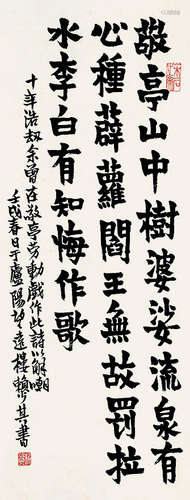 敬亭山中樹婆娑流泉有
心種薜蘿閻王無故罰拉
水李白有知悔作歌
十年浩劫余曾在敬亭劳動戲作此詩以解嘲
壬戌春日于廬陽望遠樓賴少其書